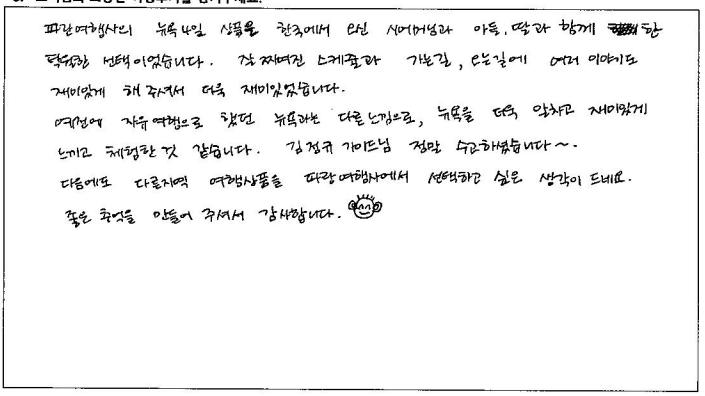 파란여행사의 뉴욕4일 상품을 한국에서 오신 시어머님과 아들, 딸과 함께 한
탁월한 선택이었습니다. 잘 짜여진 스케줄과 가는길, 오는길에 여러 이야기도
재미있게 해 주셔서 더욱 재미있었습니다.
예전에 자유여행으로 했던 뉴욕과는 다른 느낌으로, 뉴욕을 더욱 알차고 재미있게
느끼고 체험한 것 같습니다. 김정규 가이드님 정말 수고하셨습니다~.
다음에도 다른지역 여행상품을 파란여행사에서 선택하고 싶은 생각이 드네요.
좋은 추억을 만들어 주셔서 감사합니다.